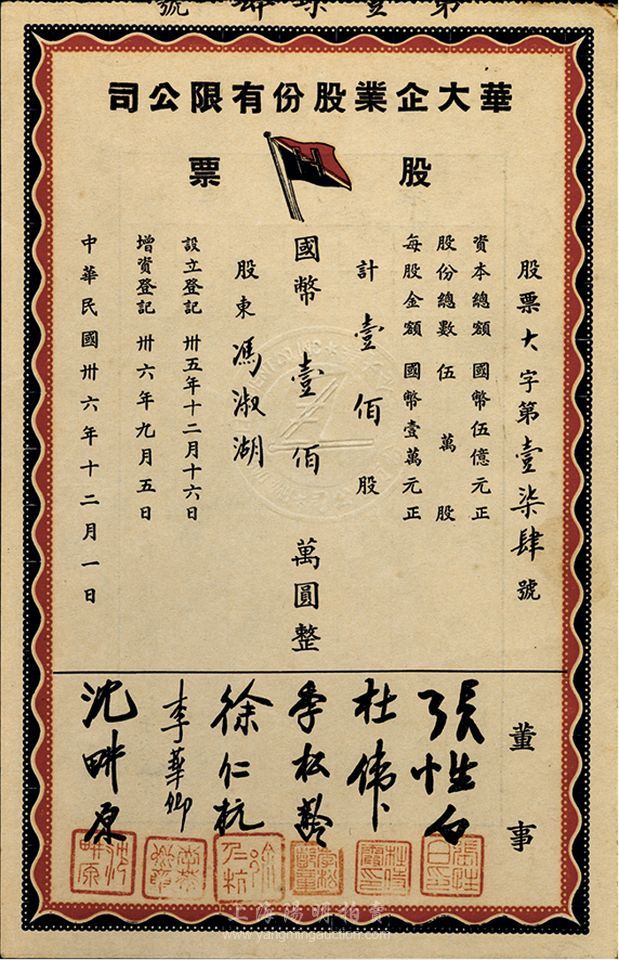 第壹柒肆號
華大企業股份有限公司
股票
股票大字第壹柒肆號
資本總額 國幣伍億元正
股份總數 伍萬股
每股金額 國幣壹萬元正
計壹佰股
國幣壹佰萬圓整
股東馮淑湖
設立登記 卅五年十二月十六日
增資登記 卅六年九月五日
中華民國卅六年十二月一日
董事
張性白
杜偉
李松齡
徐仁杭
李華卿
沈畊原
上海陽明拍賣
www.yangmingauction.com